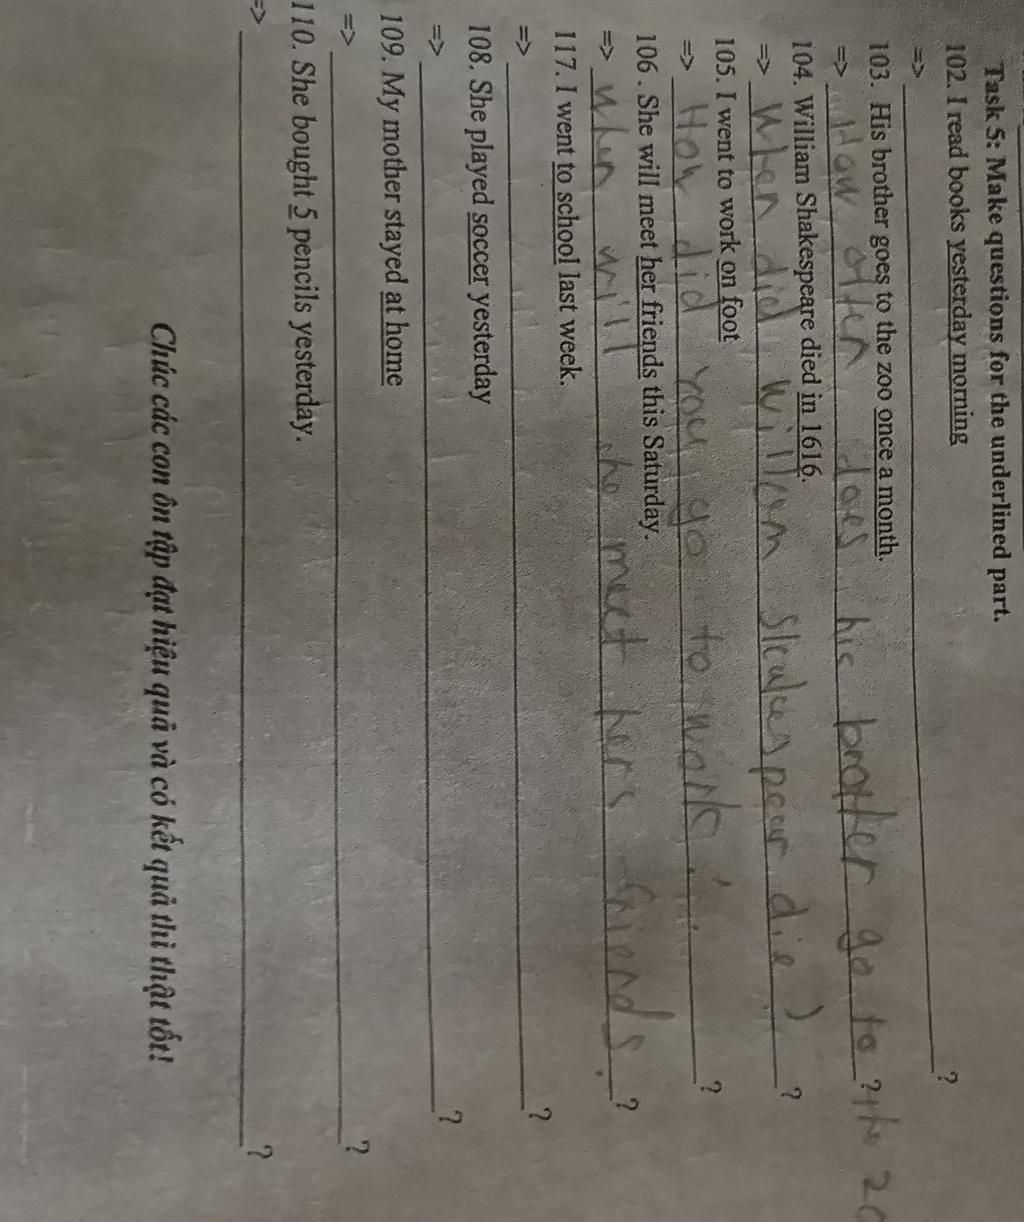 Task 5: Make questions for the underlined part.
102. I read books yesterday morning
=> ?
103. His brother goes to the zoo once a month.
=> How often does his brother go to ? the
104. William Shakespeare died in 1616.
=> When did die ?
105. I went to work on foot
=> How did you go to work ?
106 . She will meet her friends this Saturday.
=> when will she meet hers friends. ?
117. I went to school last week.
=> ?
108. She played soccer yesterday
=> ?
109. My mother stayed at home
=> ?
110. She bought 5 pencils yesterday.
=> ?
Chúc các con ôn tập đạt hiệu quả và có kết quả thi thật tốt!